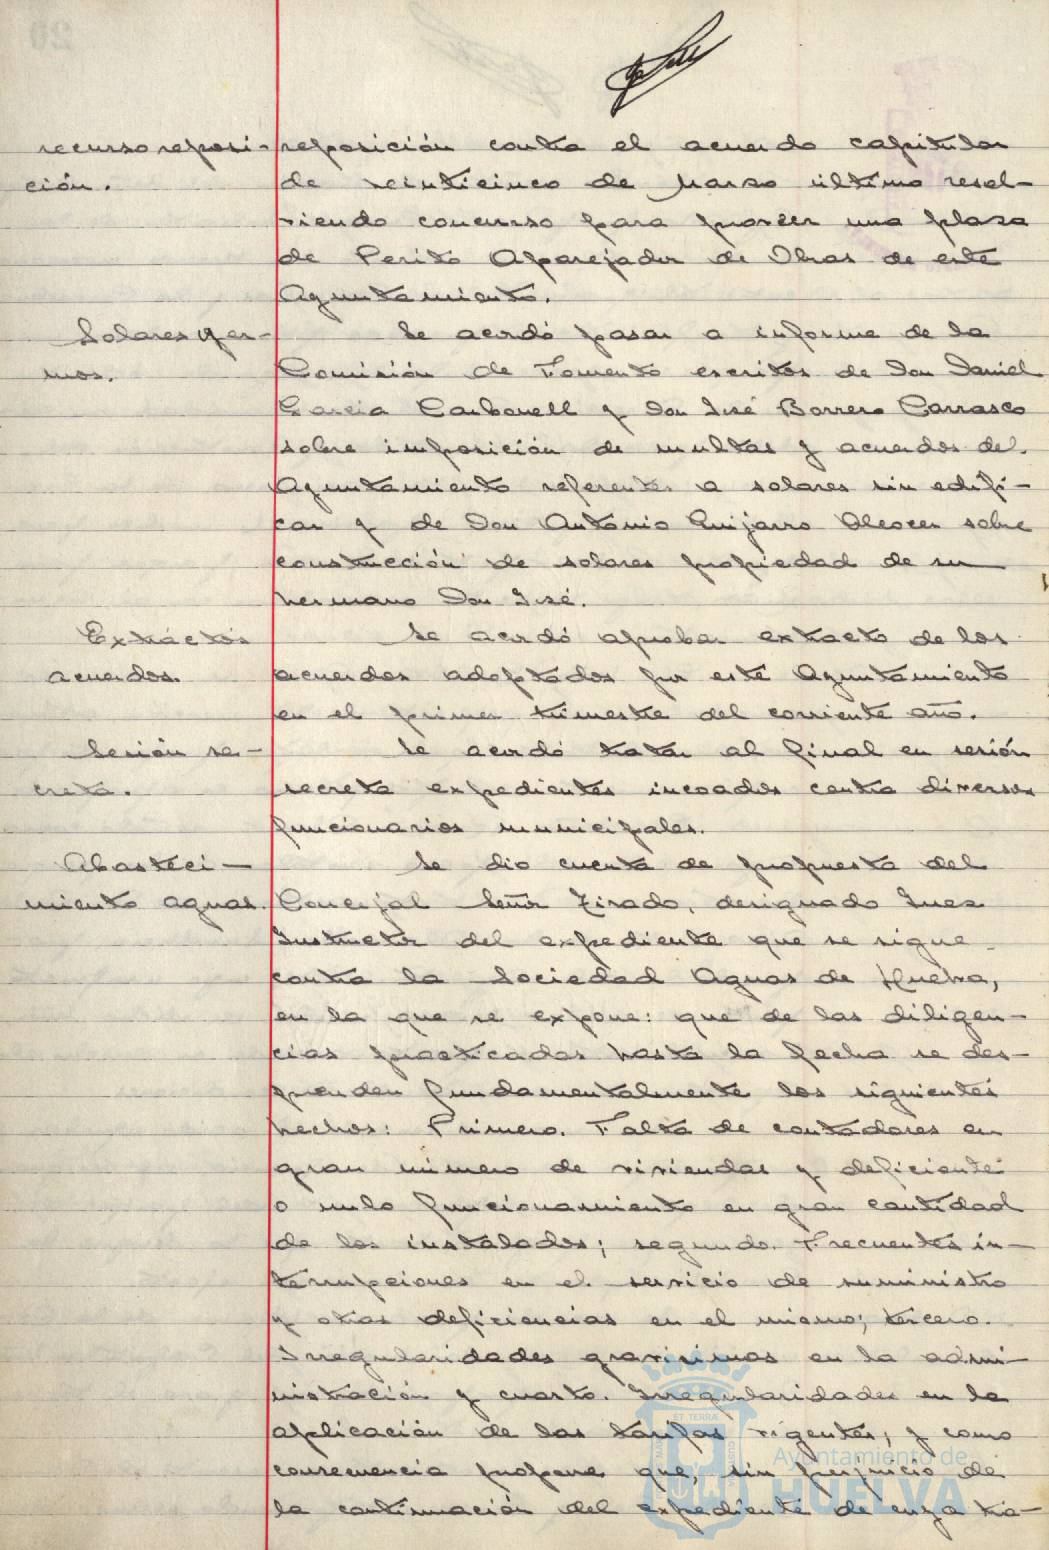 recurso reposi- reposición contra el acuerdo capitular
ción. de veinticinco de Marzo último resol-
viendo concurso para proveer una plaza
de Perito Aparejador de Obras de este
Ayuntamiento.
Solares yer- Se acordó pasar a informe de la
mos. Comisión de Fomento escritos de Don Daniel
García Carbonell y Don José Borrero Carrasco
sobre imposición de multas y acuerdos del
Ayuntamiento referentes a solares sin edifi-
car y de Don Antonio Guijarro Alcocer sobre
construcción de solares propiedad de su
hermano Don José.
Extractos Se acordó aprobar extracto de los
acuerdos. acuerdos adoptados por este Ayuntamiento
en el primer trimestre del corriente año.
Sesión se- Se acordó tratar al final en sesión
creta. secreta expedientes incoados contra diversos
funcionarios municipales.
Abasteci- Se dio cuenta de propuesta del
miento aguas. Concejal Señor Tirado, designado Juez
Instructor del expediente que se sigue
contra la Sociedad Aguas de Huelva,
en la que se expone: que de las diligen-
cias practicadas hasta la fecha se des-
prenden fundamentalmente los siguientes
hechos: Primero. Falta de contadores en
gran número de viviendas y deficiente
o nulo funcionamiento en gran cantidad
de los instalados; segundo. Frecuentes in-
terrupciones en el servicio de suministro
y otras deficiencias en el mismo; tercero.
Irregularidades gravísimas en la admi-
nistración y cuarto. Irregularidades en la
aplicación de las tarifas vigentes; y como
consecuencia propone que, sin perjuicio de
la continuación del expediente de cuya tra-
Ayuntamiento de
HUELVA